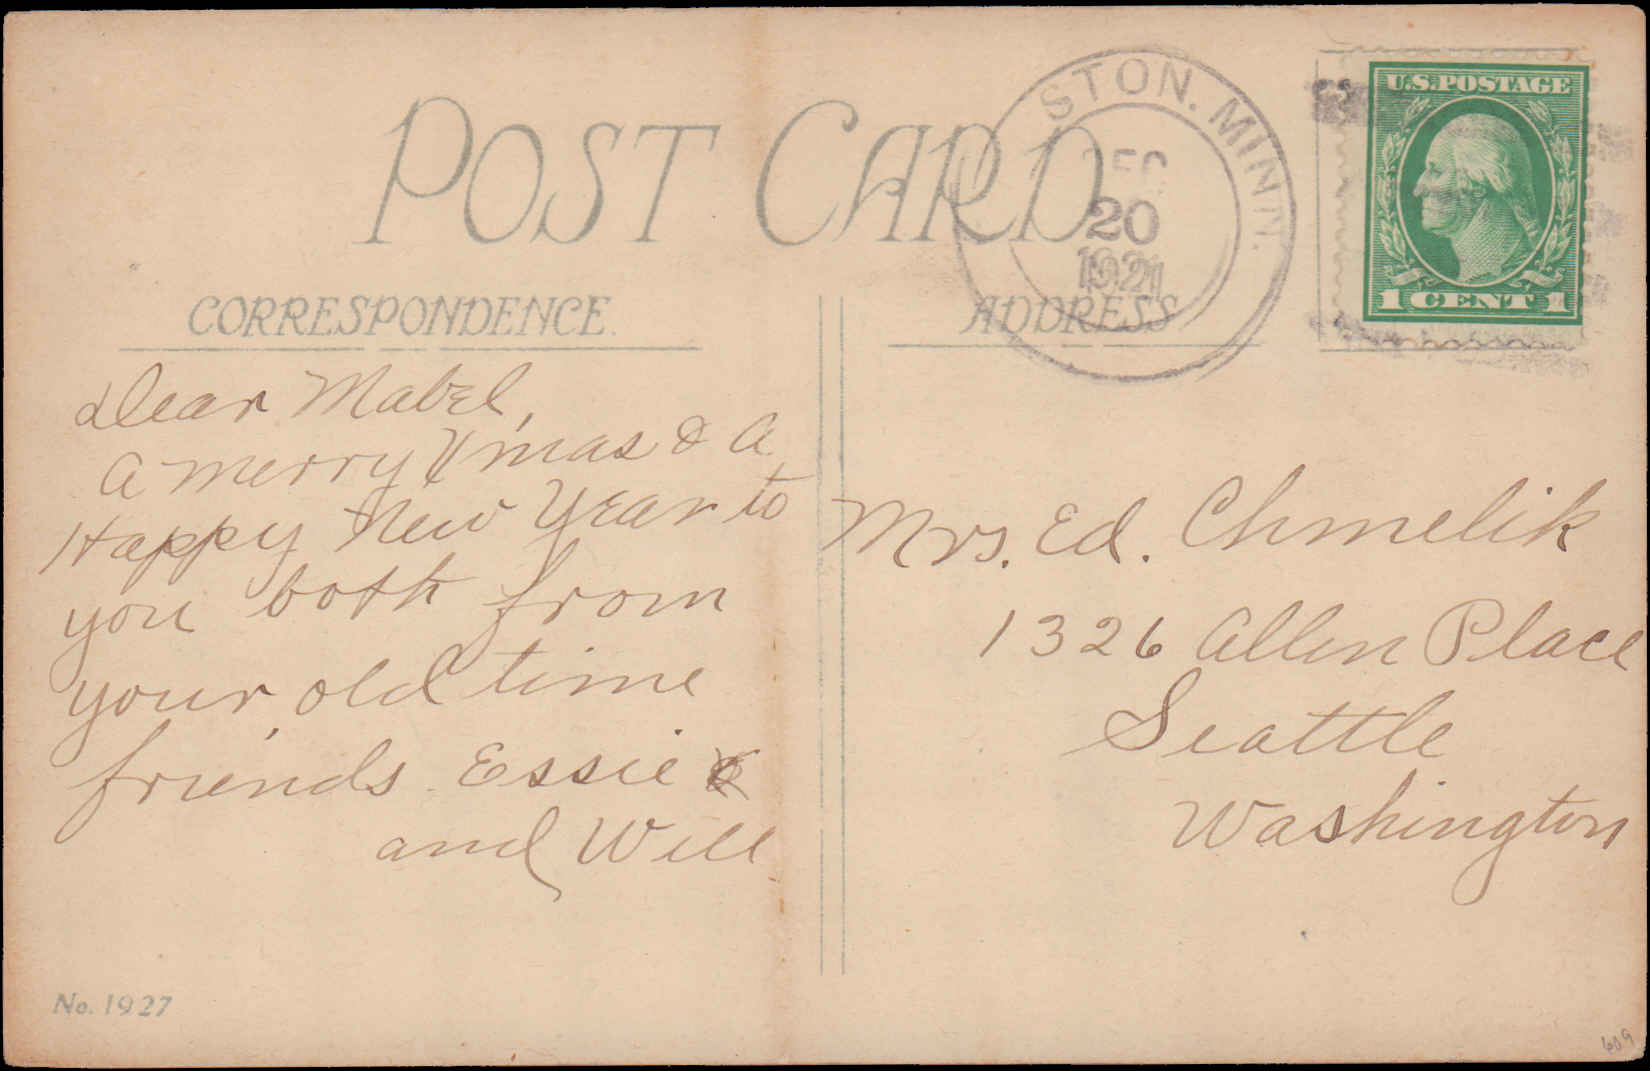 POST CARD
STON. MINN.
20
1921
U.S. POSTAGE
1 CENT 1
CORRESPONDENCE.
ADDRESS
Dear Mabel,
A merry X'mas & A
Happy New Year to
you both from
your old time
friends Essie
and Will
Mrs. Ed. Chmelik
1326 Allen Place
Seattle
Washington
No. 1927
609